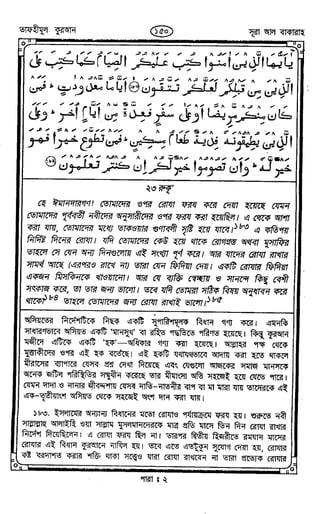 তাফহীমুল কুরআন
১৫০
সূরা আল বাকারাহ
يٰۤاَيُّهَا الَّذِيْنَ اٰمَنُوْا كُتِبَ عَلَيْكُمُ الصِّيَامُ كَمَا كُتِبَ عَلَى
الَّذِيْنَ مِنْ قَبْلِكُمْ لَعَلَّكُمْ تَتَّقُوْنَ ۝ اَيَّامًا مَّعْدُوْدٰتٍ ۚ فَمَنْ
كَانَ مِنْكُمْ مَّرِيْضًا اَوْ عَلٰى سَفَرٍ فَعِدَّةٌ مِّنْ اَيَّامٍ اُخَرَ ؕ وَعَلَى
الَّذِيْنَ يُطِيْقُوْنَهٗ فِدْيَةٌ طَعَامُ مِسْكِيْنٍ ؕ فَمَنْ تَطَوَّعَ خَيْرًا فَهُوَ
خَيْرٌ لَّهٗ ؕ وَاَنْ تَصُوْمُوْا خَيْرٌ لَّكُمْ اِنْ كُنْتُمْ تَعْلَمُوْنَ ۝
২৩ রুকূ’
হে ঈমানদারগণ! তোমাদের ওপর রোযা ফরয করে দেয়া হয়েছে যেমন
তোমাদের পূর্ববর্তী নবীদের অনুসারীদের ওপর ফরয করা হয়েছিল। এ থেকে আশা
করা যায়, তোমাদের মধ্যে তাকওয়ার গুণাবলী সৃষ্টি হয়ে যাবে।১৮৩ এ কতিপয়
নির্দিষ্ট দিনের রোযা। যদি তোমাদের কেউ হয়ে থাকে রোগগ্রস্ত অথবা মুসাফির
তাহলে সে যেন অন্য দিনগুলোয় এই সংখ্যা পূর্ণ করে। আর যাদের রোযা রাখার
সামর্থ আছে (এরপরও রাখে না) তারা যেন ফিদিয়া দেয়। একটি রোযার ফিদিয়া
একজন মিসকিনকে খাওয়ানো। আর যে ব্যক্তি স্বেচ্ছায় ও সানন্দে কিছু বেশী
সৎকাজ করে, তা তার জন্য ভালো। তবে যদি তোমরা সঠিক বিষয় অনুধাবন করে
থাকো১৮৪ তাহলে তোমাদের জন্য রোযা রাখাই ভালো।১৮৫
অসিয়তের নির্দেশটিকে নিছক একটি সুপারিশমূলক বিধান গণ্য করে। এমনকি
সাধারণভাবে অসিয়ত একটি ‘মানসুখ’ বা রহিত পদ্ধতিতে পরিণত হয়েছে। কিন্তু কুরআন
মজীদে এটিকে একটি ‘হক’—অধিকার গণ্য করা হয়েছে। আল্লাহর পক্ষ থেকে
মুত্তাকীদের ওপর এই হক বর্তেছে। এই হকটি যথাযথভাবে আদায় করা হতে থাকলে
মীরাসের ব্যাপারে যেসব প্রশ্ন দেখা দিয়েছে এবং যেগুলো আজকের সমাজ মানসকে
অনেক জটিল পরিস্থিতির সম্মুখীন করেছে তার মীমাংসা অতি সহজেই হয়ে যেতে পারে।
যেমন দাদা ও নানার জীবদ্দশায় যেসব নাতি-নাতনীর বাপ বা মা মারা যায় তাদেরকে এই
এক-তৃতীয়াংশ অসিয়ত থেকে সহজেই অংশ দান করা যায়।
১৮৩. ইসলামের অন্যান্য বিধানের মতো রোযাও পর্যায়ক্রমে ফরয হয়। শুরুতে নবী
সাল্লাল্লাহু আলাইহি ওয়া সাল্লাম মুসলমানদেরকে মাত্র প্রতি মাসে তিন দিন রোযা রাখার
নির্দেশ দিয়েছিলেন। এ রোযা ফরয ছিল না। তারপর দ্বিতীয় হিজরীতে রমযান মাসের
রোযার এই বিধান কুরআনে নাযিল হয়। তবে এতে এতটুকুন সুযোগ দেয়া হয়, রোযার
কষ্ট বরদাশত করার শক্তি থাকা সত্ত্বেও যারা রোযা রাখবেন না তারা প্রত্যেক রোযার
পারা : ২